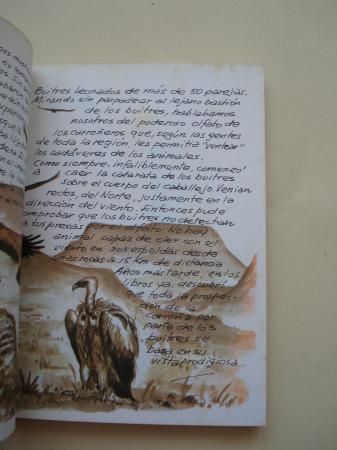 Buitres Leonados de más de 50 parejas.
Mirando sin parpadear al lejano bastión
de los buitres, hablabamos
nosotros del poderoso olfato de
los carroñeros que, según las gentes
de toda la región, les permitía "ventear"
los cadáveres de los animales.
Como siempre, infaliblemente, comenzó
a caer la catarata de los buitres
sobre el cuerpo del caballejo Venían
rectos, del Norte, justamente en la
dirección del viento. Entonces pude
comprobar que los buitres no detectan
a sus presas por el olfato No hay
animal capaz de oler con el
viento en sus espaldas desde
unas rocas a 15 km de distancia
Años mas tarde, en los
libros ya, descubrí
que toda la prospec-
ción de la
carroña por
parte de los
buitres se
basa en su
vista prodigiosa